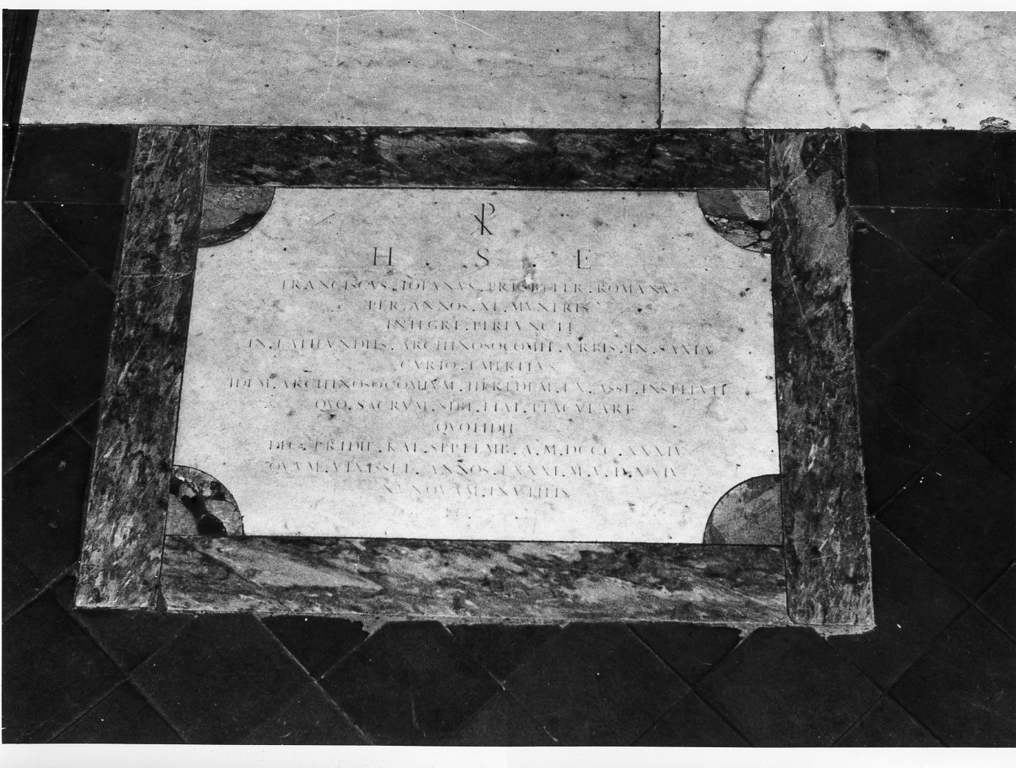 ☧
H . S . E
FRANCISCVS . IOHANNAS . PRESBITER . ROMANVS
PER . ANNOS . XL . MVNERIS
INTEGRE . PERFVNCTI
IN . LATIFVNDIIS . ARCHINOSOCOMII . VRBIS . IN . SAXIA
CVRIO . EMERITVS
IDEM . ARCHINOSOCOMIVM . HEREDEM . EX . ASSE . INSTITVIT
QVO . SACRVM . SIBI . FIAT . PIACVLARE
QVOTIDIE
DEC . PRIDIE . KAL . SEPTEMB . A . M . DCCC . XXXIV
QVVM . VIXISSET . ANNOS . LXXXI . M . V . D .
NVNQVAM . INVTILIS